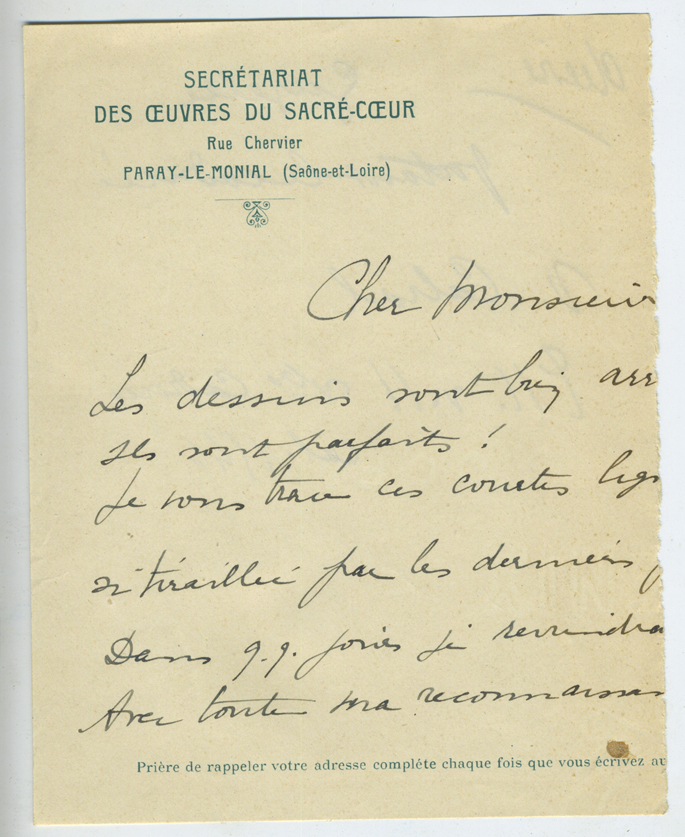 SECRÉTARIAT
DES ŒUVRES DU SACRÉ-CŒUR
Rue Chervier
PARAY-LE-MONIAL (Saône-et-Loire)
Cher Monsieur
Les dessins sont bien arr
Ils sont parfaits !
Je vous trace ces courtes lig
si tiraillée par les derniers
Dans q.q. jours je reviendra
Avec toute ma reconnaissan
Prière de rappeler votre adresse complète chaque fois que vous écrivez au